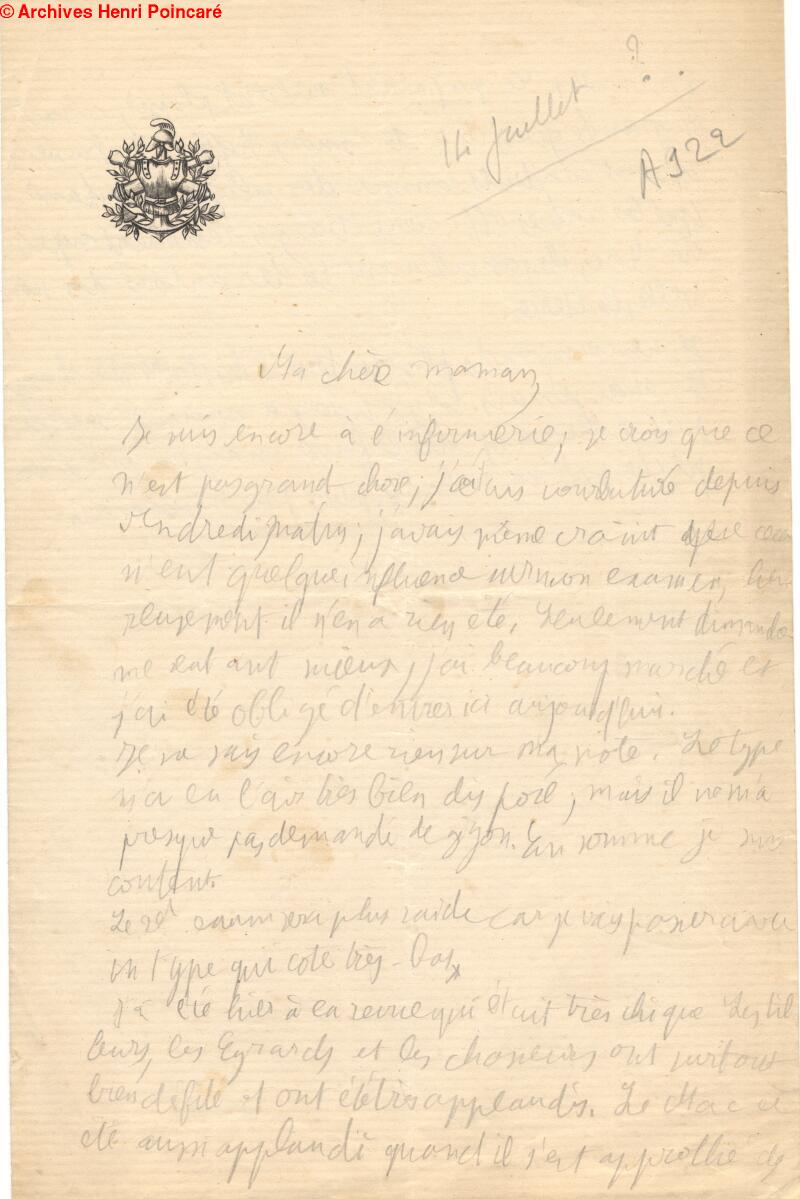 © Archives Henri Poincaré
14 Juillet ?..
A 922
Ma chère maman,
Je suis encore à l'infirmerie, je crois que ce
n'est pas grand chose; j'étais courbaturé depuis
vendredi matin; j'avais même craint que cela
n'eut quelque influence sur mon examen, heu-
reusement il n'en a rien été. Seulement dimanche
me sentant mieux, j'ai beaucoup marché et
j'ai été obligé d'entrer ici aujourd'hui.
Je ne sais encore rien sur ma note. Le type
n'a eu l'air très bien disposé, mais il ne m'a
presque pas demandé de gzon. En somme je suis
content.
Le 2d exam sera plus raide car je vais passer avec
un type qui cote très-bas,
J'ai été hier à la revue qui était très chique Les
les et les ont surtout
bien défilé et ont été très applaudis. Le Mac a
été aussi applaudi quand il s'est approché de